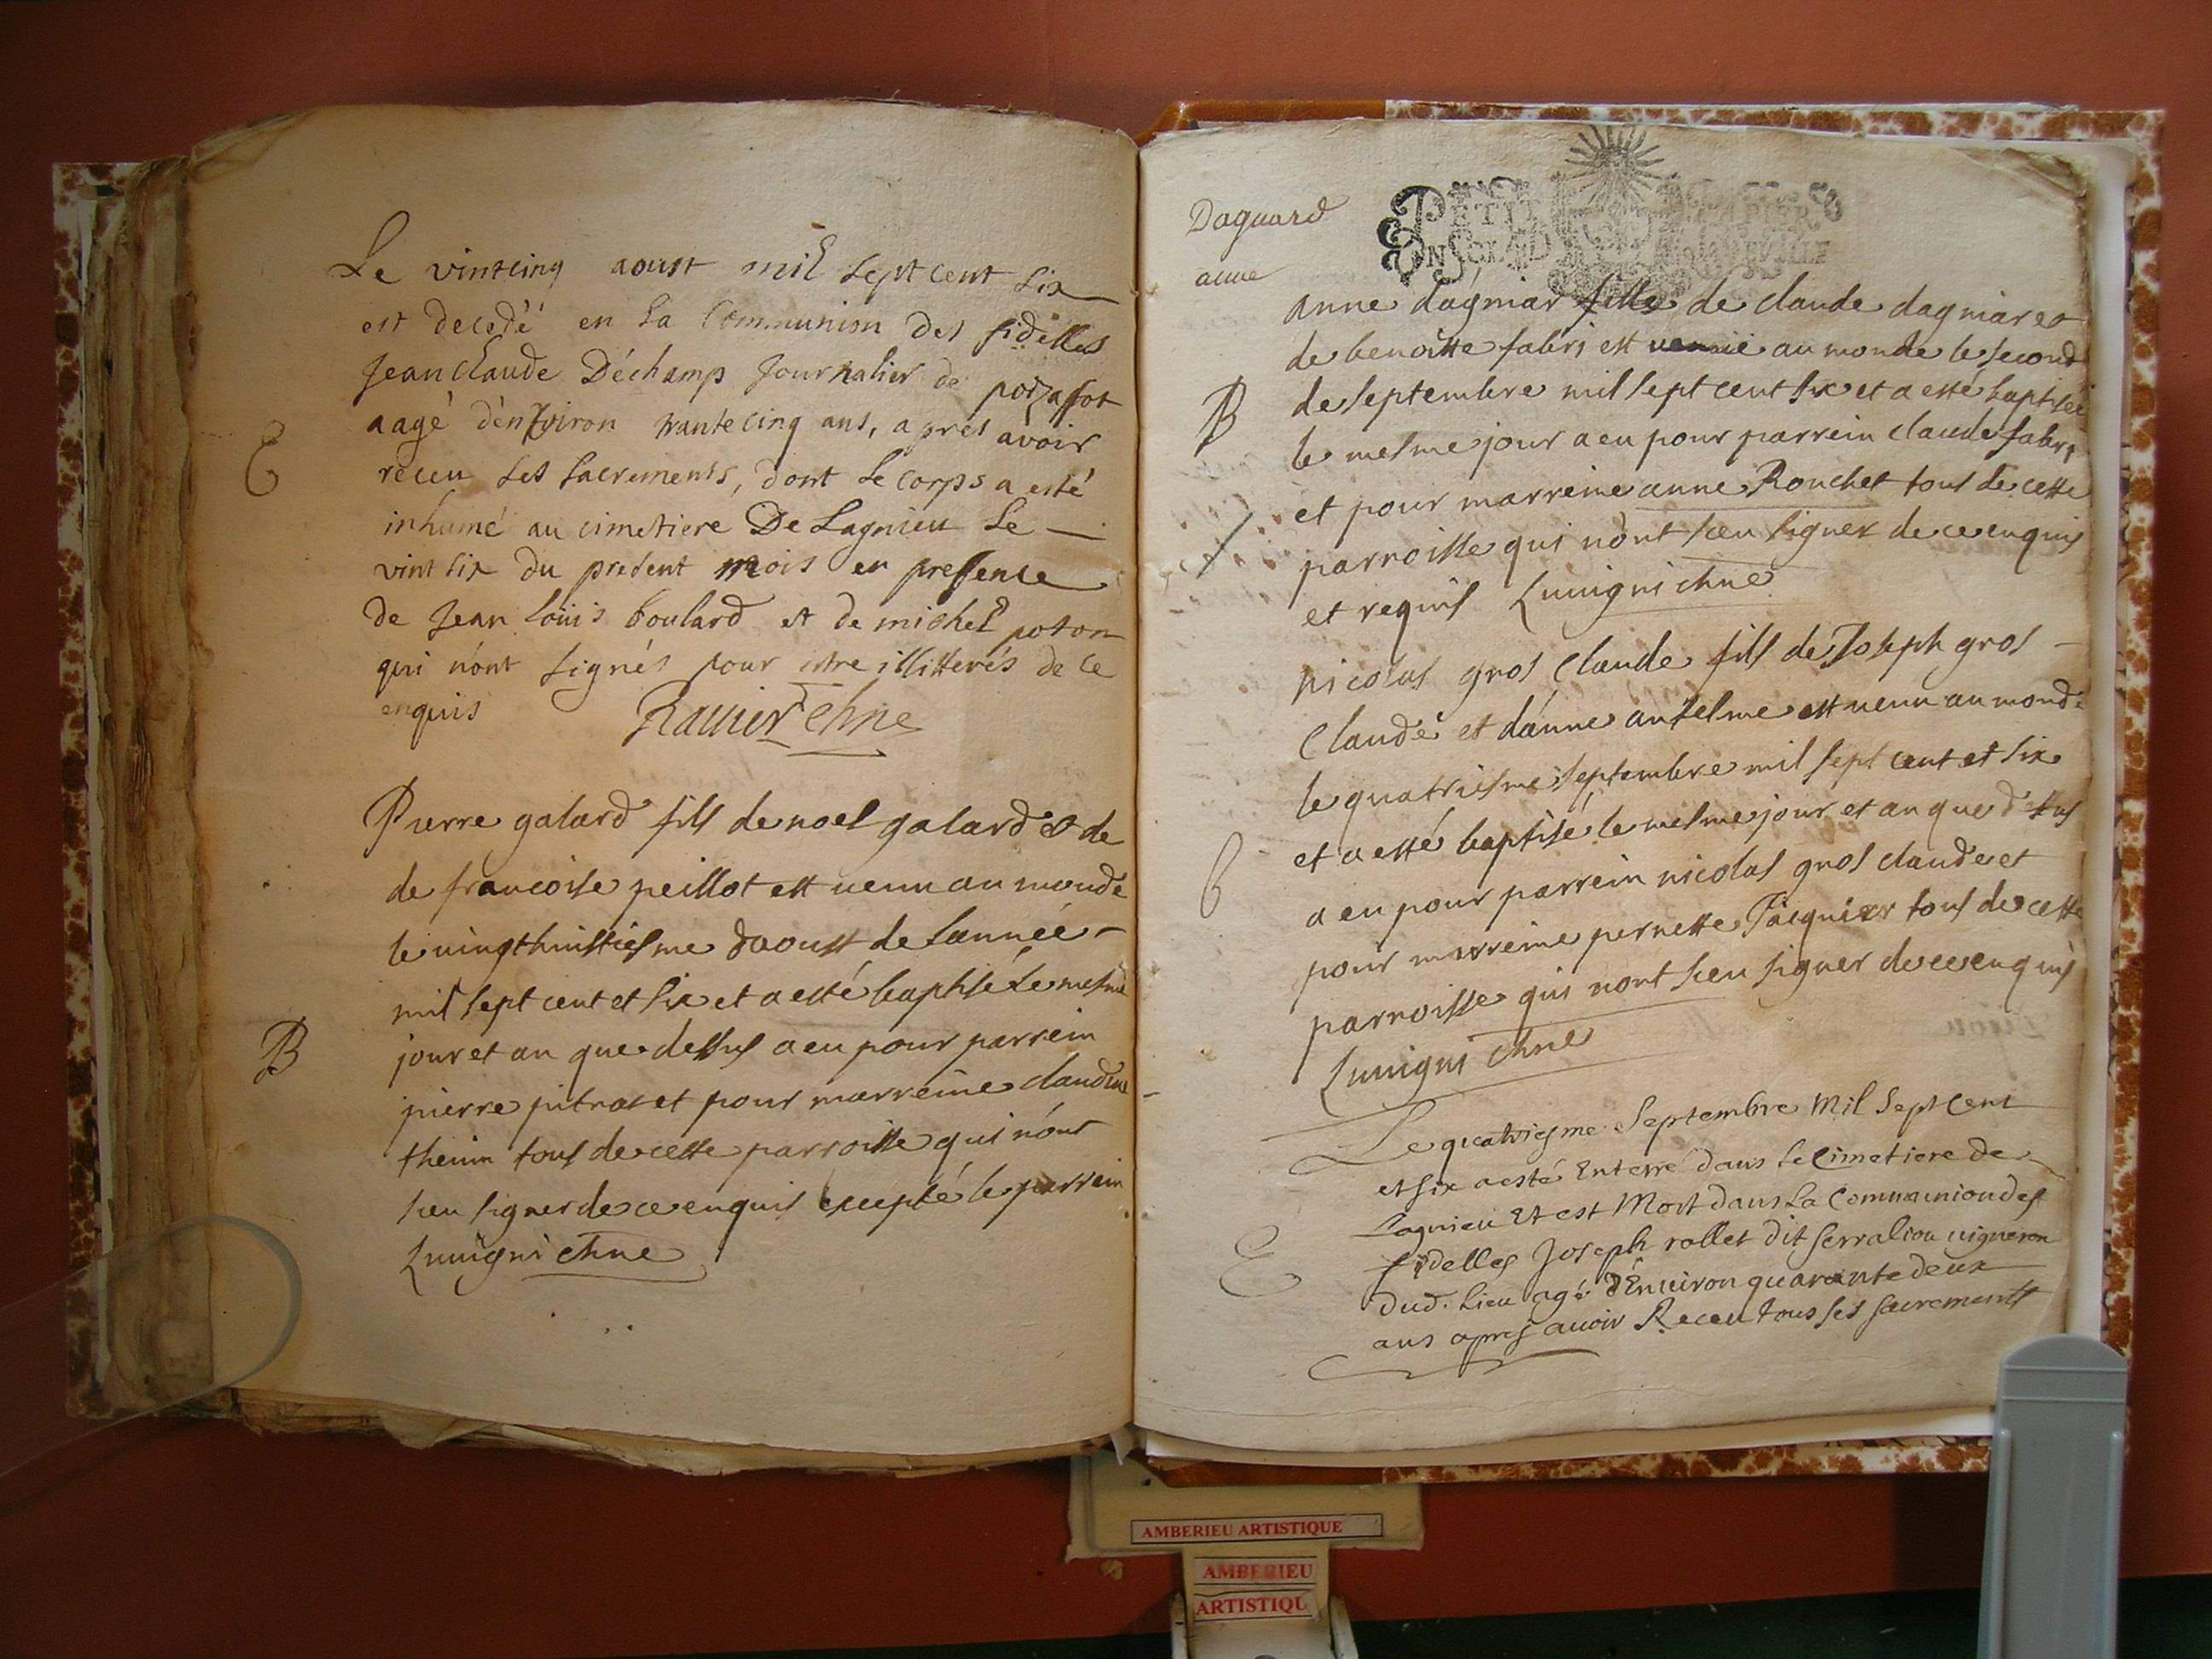 Le vintcinq aoust mil sept cent six
est decedé en la Communion des fidelles
Jean Claude Déchamp Journalier de
aagé d'environ trantecinq ans, aprés avoir
E
receu ses sacrements, dont le corps a esté
inhumé au cimetiere De Lagnieu le
vintsix du present mois en presence
de Jean loüis boulard et de michel poton
qui n'ont signés pour estre illitterés de ce
enquis Ravier chne
Pierre galard fils de noel galard et de
de francoise peillot est venu au monde
le vingthuitiesme daoust de lannée
mil sept cent et six et a esté baptisé le mesme
B
jour et an que dessus a eu pour parrein
pierre pitrat et pour marreine claudine
thenin tous de cette parroisse qui n'ont
sceu signer de ce enquis excepté le parrein
chne
Daguard
anne
PETIT PAPIER
UN SOL LA
anne dagniar fille de claude dagniar et
de benoitte fabri est venuë au monde le second
B
de septembre mil sept cent six et a esté baptisée
le mesme jour a eu pour parrein claude fabri
et pour marreine anne Rouchet tous de cette
parroisse qui n'ont sceu signer de ce enquis
et requis chne
nicolas gros Claude fils de Joseph gros
Claude et d'anne anselme est venu au monde
le quatriesme septembre mil sept cent et six
et a esté baptisé le mesme jour et an que dessus
B
a eu pour parrein nicolas gros claude et
pour marreine pernette tous de cette
parroisse qui n'ont sceu signer de ce enquis
chne
Le quatriesme Septembre Mil Sept Cent
et six a esté Enterré dans le Cimetiere de
Lagnieu Et est Mort dans La Communion des
E
fidelles Joseph rollet dit vigneron
dud. Lieu agé d'Environ quarante deux
ans apres avoir Receu tous ses sacrements
AMBERIEU ARTISTIQUE
AMBERIEU
ARTISTIQU